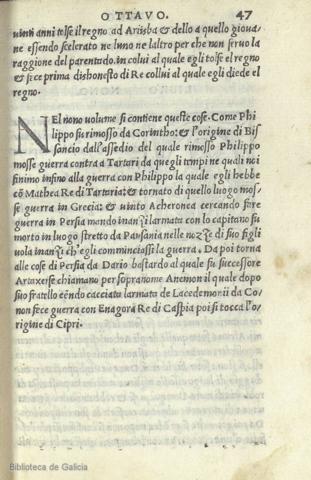 OTTAVO. 47
uinti anni tolse il regno ad Arisba & dello a quello gioua/
ne essendo scelerato ne luno ne laltro per che non seruo la
raggione del parentado. in colui al quale egli tolse el regno
& fece prima dishonesto Re collui al quale egli diede el
regno.
NEl nono uolume si contiene queste cose. Come Phi
lippo fu rimosso da Corintho: & l'origine di Bis
sancio dall'assedio del quale rimosso Philippo
mosse guerra contra a Tartari da quegl tempi ne quali noi
finimo infino alla guerra con Philippo la quale egli hebbe
cō Mathea Re di Tartaria: & tornato di quello luogo mos/
se guerra in Grecia: & uinto Acheronea cercando fare
guerra in Persia mando inanzi larmata con lo capitano fu
morto in luogo stretto da Pausania nelle nozze di sue figli
uola inanzi ch'egli comminciassi la guerra. Da poi torna
alle cose di Persia da Dario bastardo al quale fu successore
Artaxerse chiamano per sopranome Anemon il quale dopo
suo fratello eēndo cacciata larmata de Lacedemonii da Co/
non fece guerra con Enagora Re di Caspia poi si tocca l'o/
rigine di Cipri.
Biblioteca de Galicia